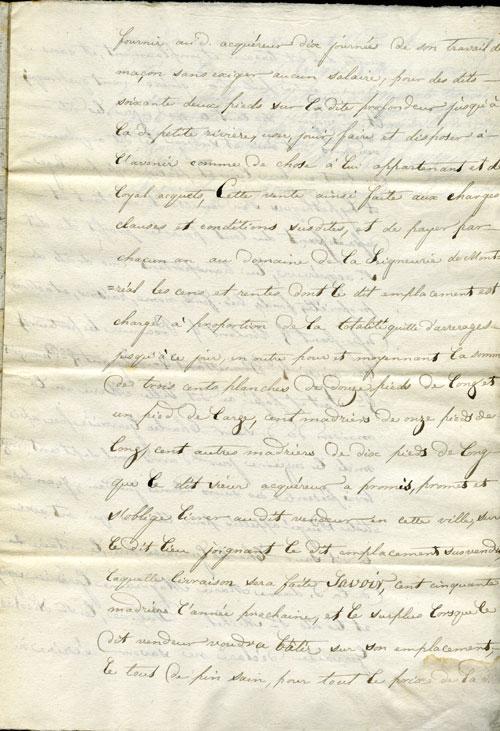 fournir au d. acquéreur dix journée de son travail de
maçon sans exiger aucun salaire, pour des dits
soixante deux pieds sur la dite profondeur jusqu'à
la d. petite rivière, user, jouir, faire et disposer à
l'avenir comme de chose à lui appartenant et de
loyal acquets, Cette vente ainsi faite aux charges
clauses et conditions susdites, et de payer par
chacun an au domaine de la Seigneurie de Mont
=réal les cens et rentes dont le dit emplacement est
chargé à proportion de la totalité quitte d'arrerages
jusqu'à ce jour, en outre pour et moyennant la somme
de trois cents planches de douze pieds de long et
un pied de large, cent madriers de onze pieds de
long, cent autres madriers de dix pieds de long
que le dit sieur acquéreur a promis, promet et
s'oblige livrer au dit vendeur en cette ville, sur
le dit lieu joignant le dit emplacement susvendu
laquelle livraison sera faite Savoir, cent cinquante
madriers l'année prochaine, et le surplus lorsque le
dit vendeur voudra bâtir sur son emplacement,
le tout de pin sain, pour tout le prix de la